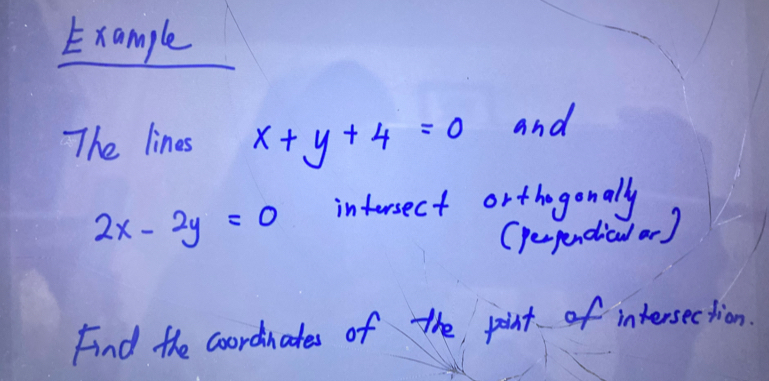 Example
The lines x + y + 4 = 0 and
2x - 2y = 0 intersect orthogonally
(perpendicular)
Find the coordinates of the point of intersection.